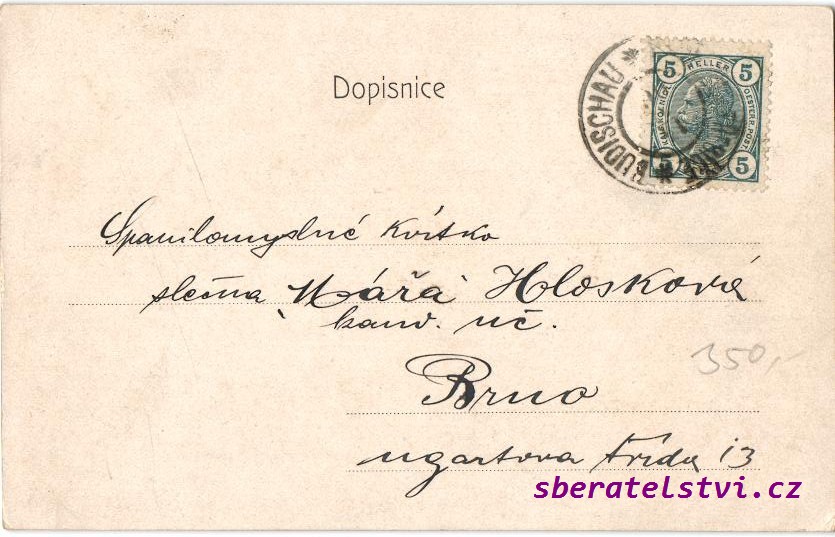 Dopisnice
5 HELLER 5
KAIS. KOENIGL.
OESTERR. POST.
5 5
BUDISCHAU
Spanilomyslné Kvítko
slečna Máňa Hlosková
kand. uč.
350,-
Brno
ugartova třída 13
sberatelstvi.cz